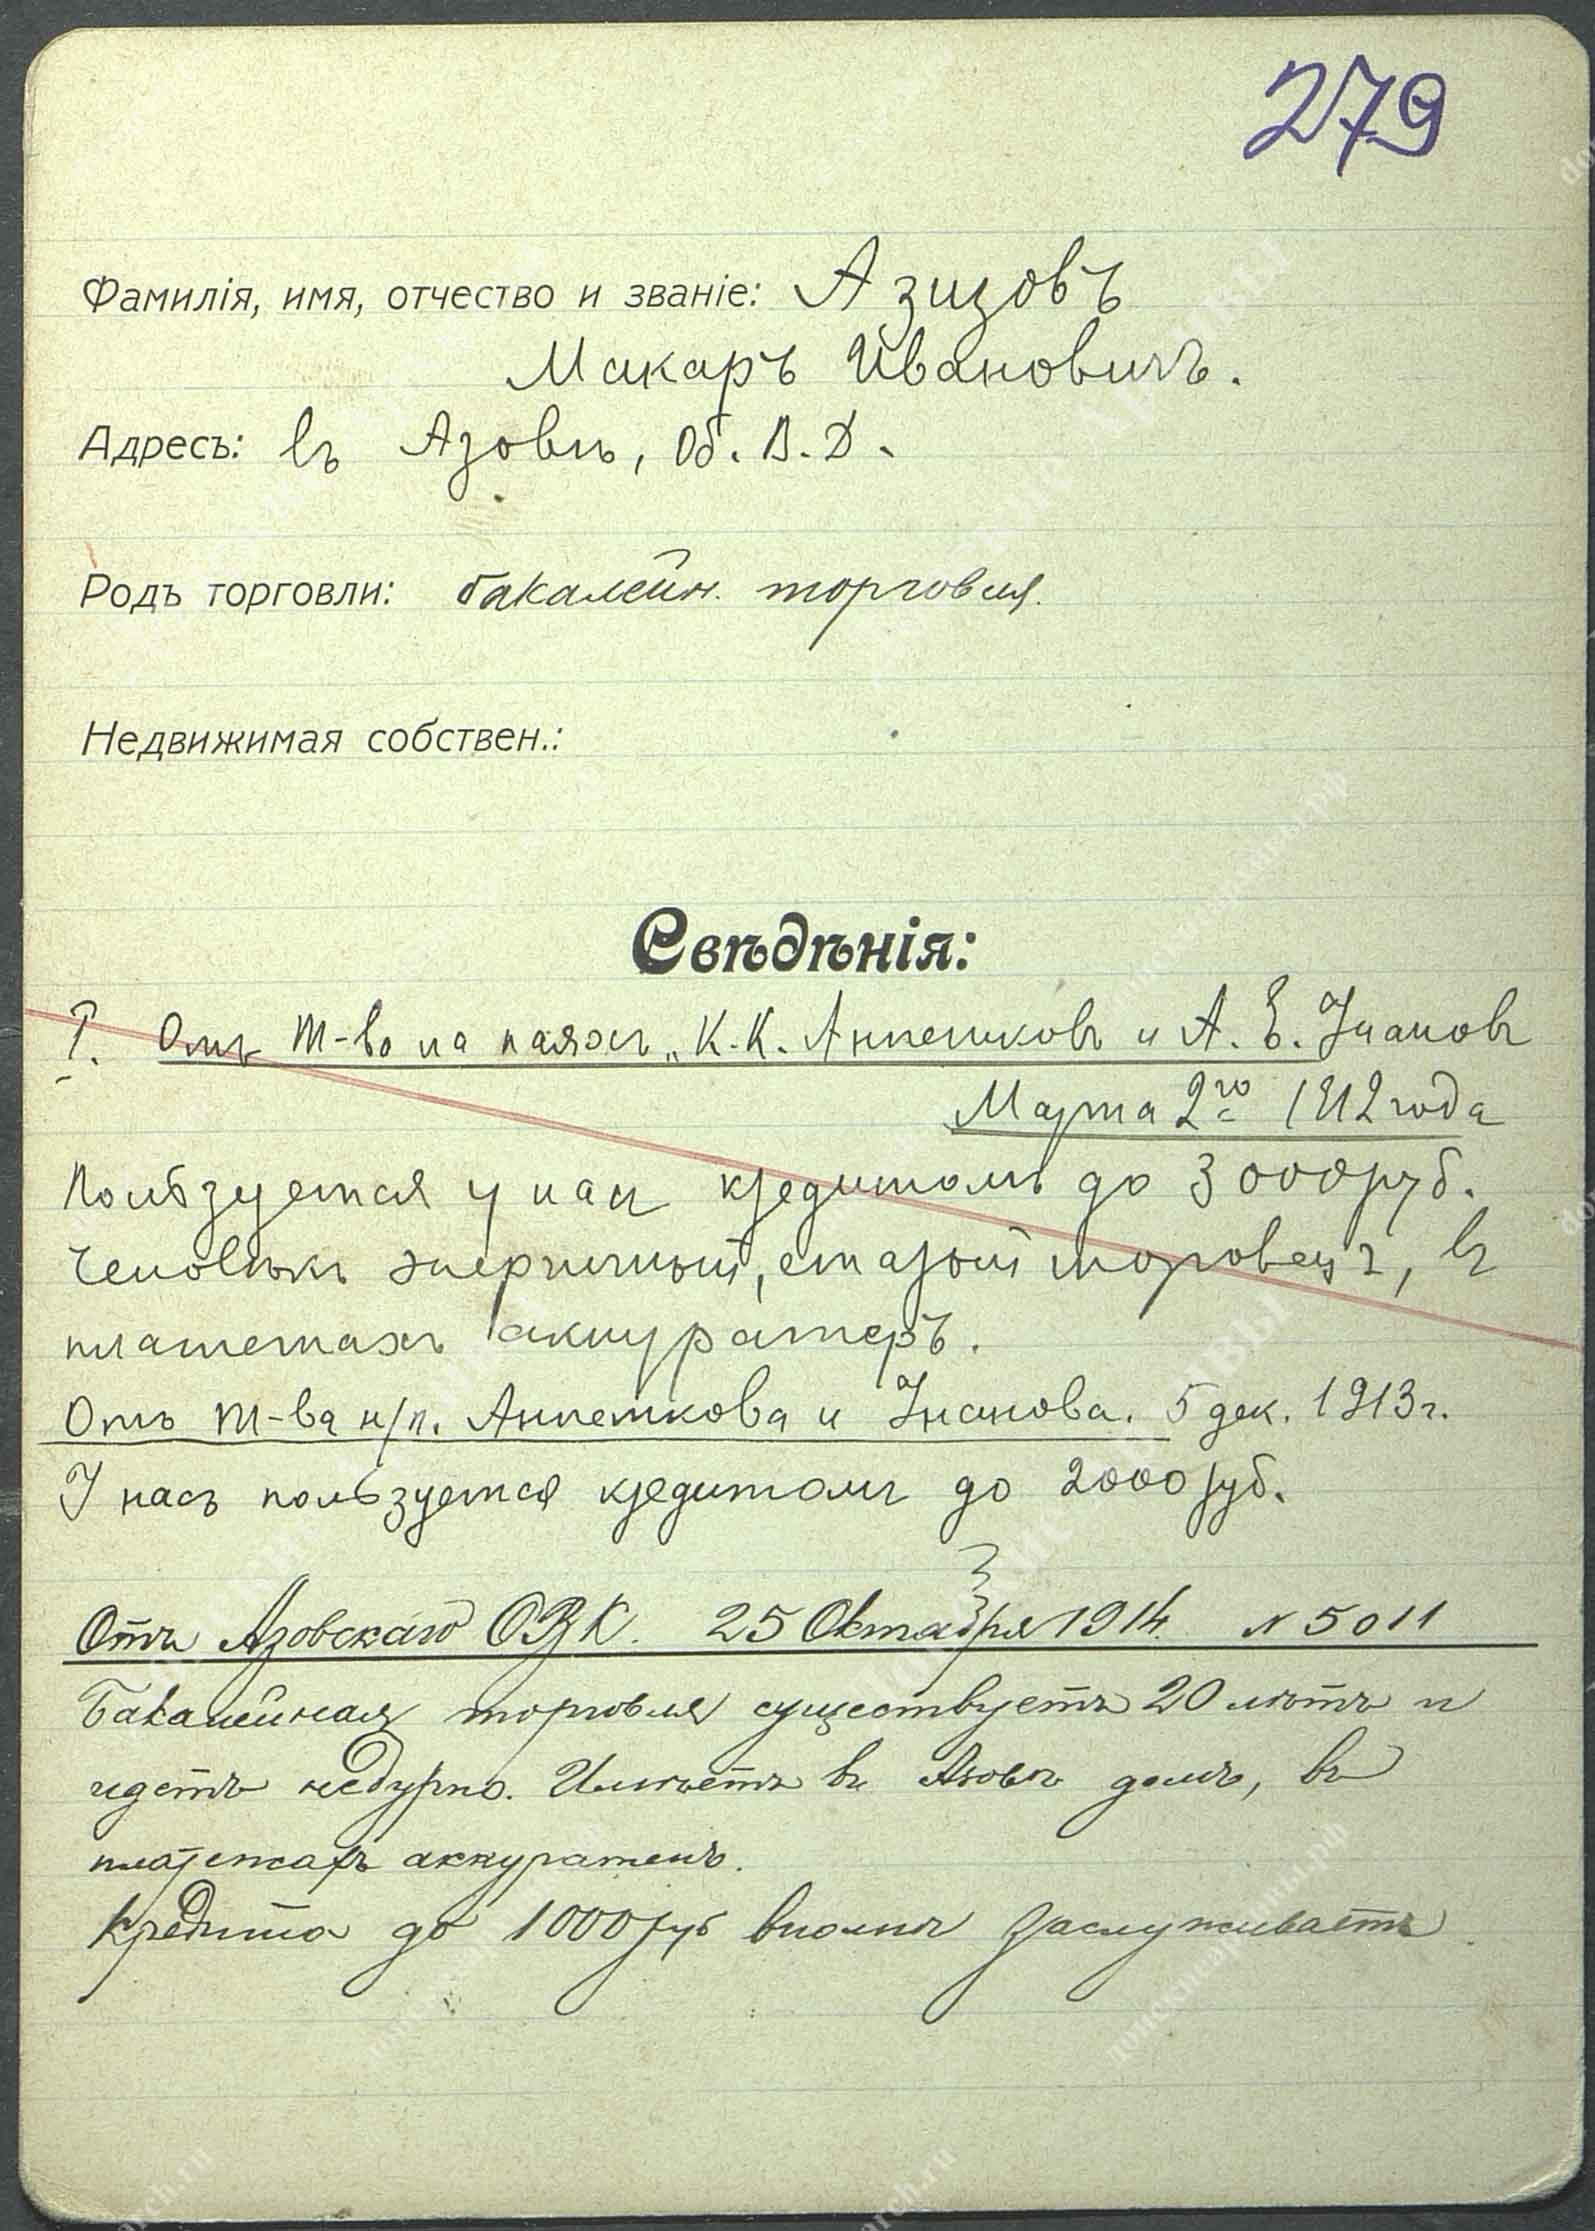 279
Фамилія, имя, отчество и званіе: Азизовъ
Макаръ Ивановичъ.
Адресъ: въ Азовѣ, Об. В. Д.
Родъ торговли: бакалейн. торговля.
Недвижимая собствен.:
Свѣдѣнія:
Отъ Т-во на паяхъ „К. К. и А. Е.
Марта 2го 1912 года
Пользуется у насъ кредитомъ до 3000 руб.
Человѣкъ энергичный, старый торговецъ, въ
платежахъ аккуратенъ.
Отъ Т-ва н/п. и 5 дек. 1913 г.
У насъ пользуется кредитомъ до 2000 руб.
Отъ Азовскаго ОВК. 25 Октября 1914. № 5011
Бакалейная торговля существуетъ 20 лѣтъ и
идетъ недурно. Имѣетъ въ Азовѣ домъ, въ
платежахъ аккуратенъ.
Кредита до 1000 руб вполнѣ заслуживаетъ.